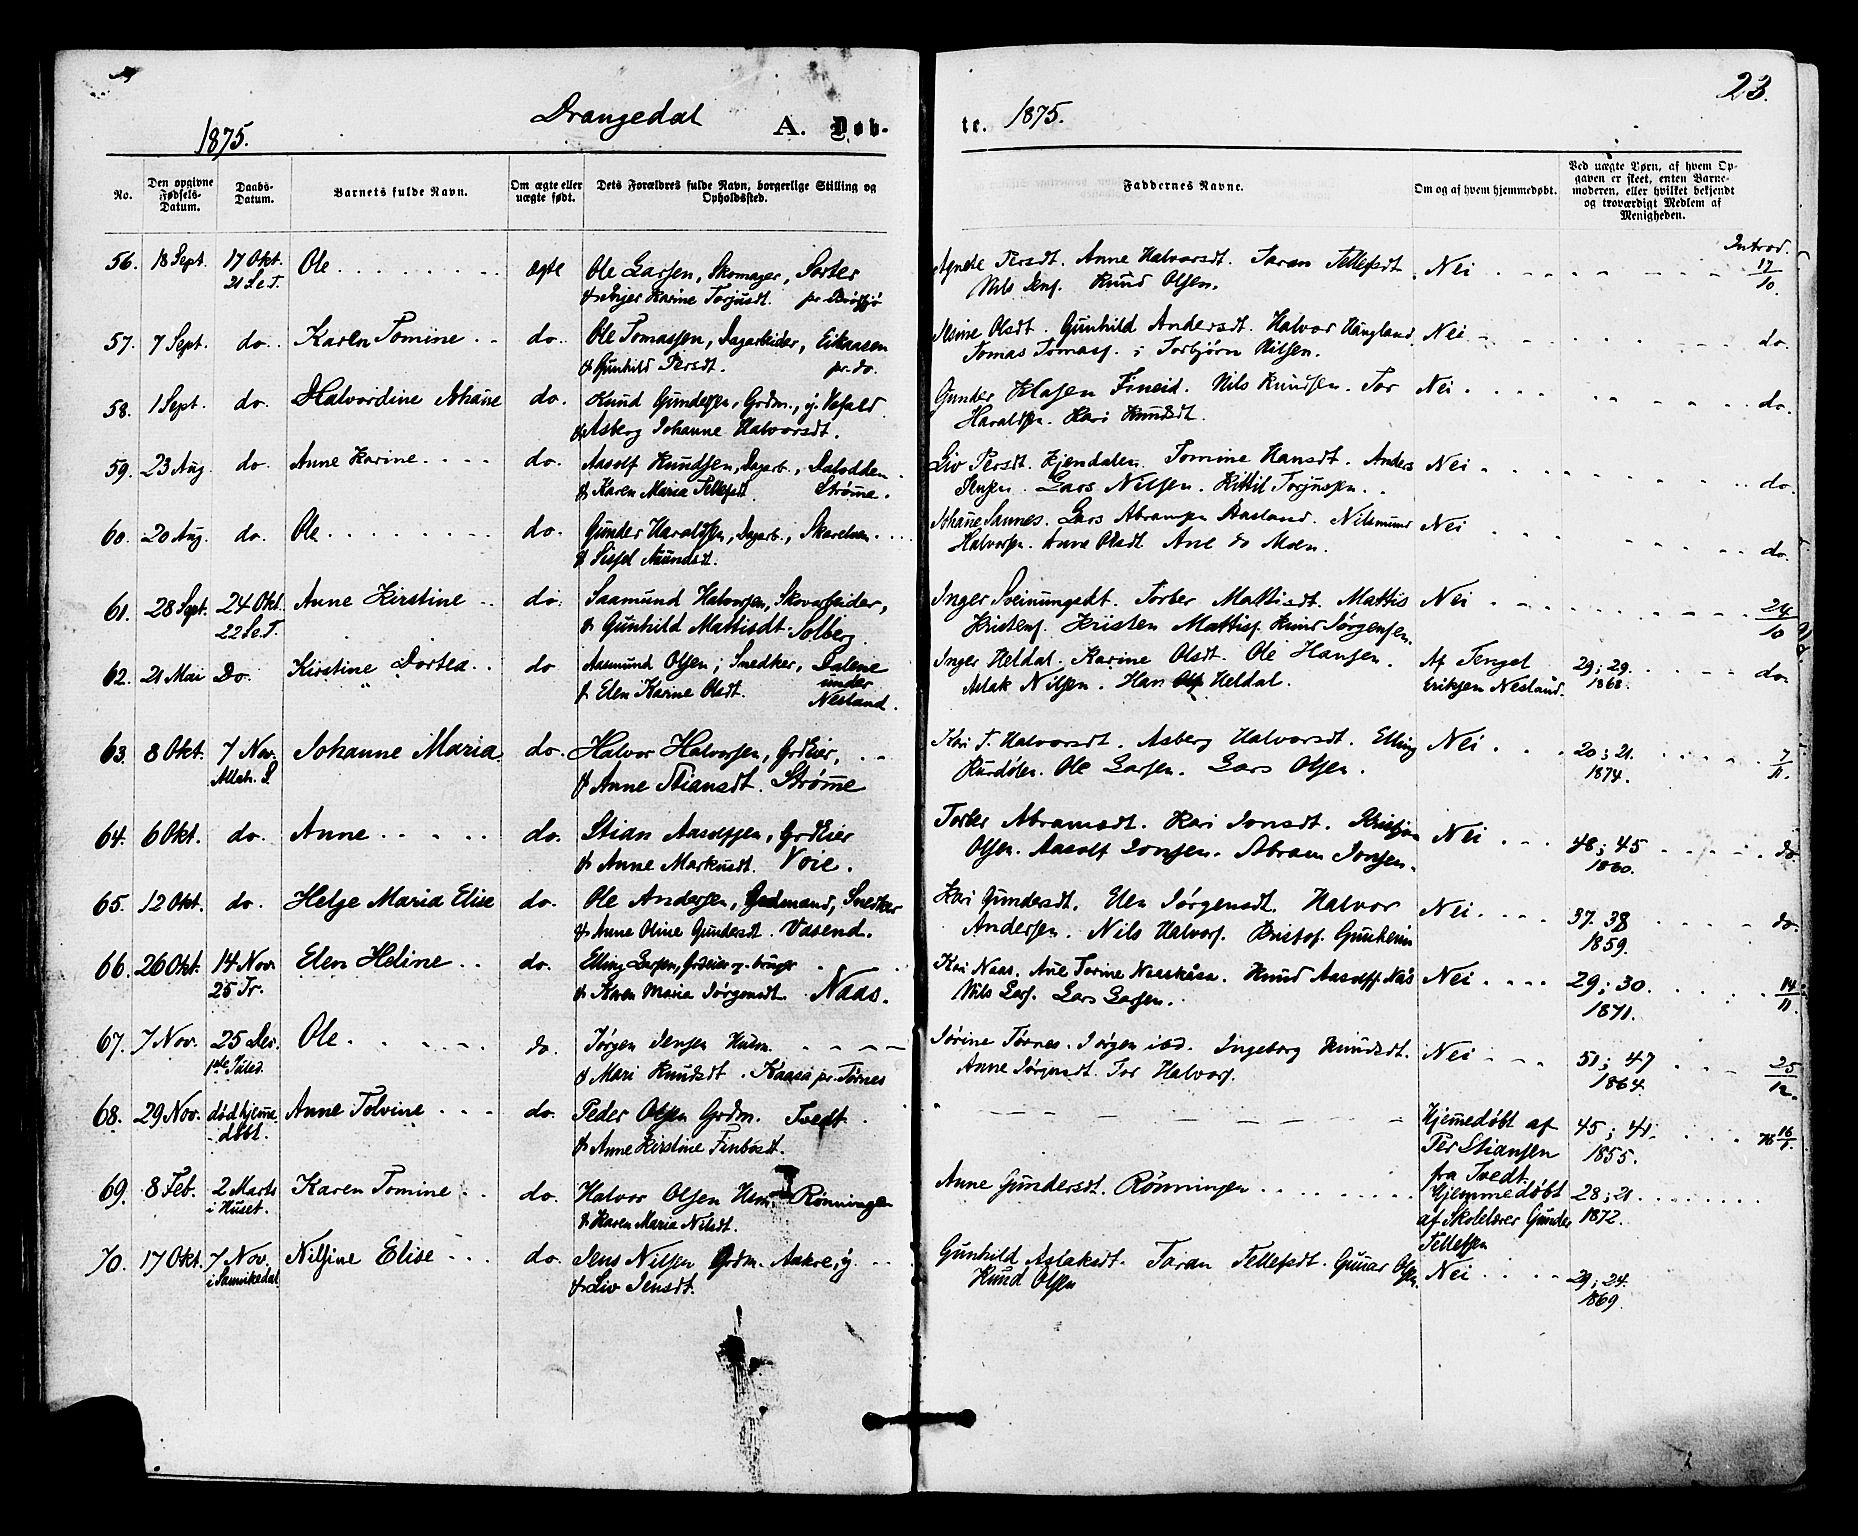 23.
Drangedal
1875.
A. Døb-
te. 1875.
No.
Den opgivne Fødsels-Datum.
Daabs-Datum.
Barnets fulde Navn.
Om ægte eller uægte født.
Dets Forældres fulde Navn, borgerlige Stilling og Opholdssted.
Faddernes Navne.
Om og af hvem hjemmedøbt.
Ved uægte Børn, af hvem Opgaven er skeet, enten Barnemoderen, eller hvilket bekjendt og troværdigt Medlem af Menigheden.
Introd.
56. 18 Sept. 17 Okt. Ole ægte Ole Larsen, Skomager, Sorter
21 S.e.T. & Inger Karine Torjusdt.
Agnete Persdt. Anne Halvorsdt. Taran Tellefsdt. Nei 17/10.
Nils Jens. Knud Olsen.
57. 7 Sept. do. Karen Tomine do. Ole Tomassen, Dagarbeider, Eikaasen
& Gunhild Persdt. pr. do.
Olsdt. Gunhild Andersdt. Halvor Haugland Nei do.
Tomas Tomass. Torbjørn Nilsen.
58. 1 Sept. do. Halvordine Johane do. Knud Gundersen, Grdm., y. Vefald
& Asberg Johanne Halvorsdt.
Gunder Klasen Fineid. Nils Knudsen. Tor Nei do.
Haraldsen. Kari Knudsdt.
59. 23 Aug. do. Anne Karine do. Aasolf Knudsen, Dagarb., Dalodden
& Karen Maria Tellefsdt. Strøme.
Liv Persdt. Kjendalen. Tomine Hansdt. Anders Nei do.
Jensen. Lars Nilsen. Kittil Torjussen.
60. 20 Aug. do. Ole do. Gunder Haraldsen, Dagarb., Skarelven
& Sissel Aamundsdt.
Johane Sannes. Lars Abramsen Aasland. Nilsmund Nei do.
Halvorsen. Anne Olsdt. Ane do Moen.
61. 28 Sept. 24 Okt. Anne Kirstine do. Saamund Halvorsen, Skovarbeider,
22 S.e.T. & Gunhild Mattisdt. Solberg.
Inger Sveinungsdt. Torber Mattisdt. Mattis Nei 24/10
Kristens. Kristen Mattiss. Knud Jørgensen.
62. 21 Mai Do. Kirstine Dortea do Aasmund Olsen, Snedker, Dalene
& Elen Karine Olsdt. under Nesland.
Inger Heldal. Karine Olsdt. Ole Hansen. Af Tengel 29; 29. do.
Aslak Nilsen. Han Heldal. Eriksen Nesland. 1868.
63. 8 Okt. 7 Nov. Johanne Maria do. Halvor Halvorsen, GrdEier,
Alleh. S & Anne Stiansdt. Strøme
Kari T. Halvorsdt. Asberg Halvorsdt. Elling Nei 20; 21. 7/11.
Kurdølen. Ole Larsen. Lars Olsen. 1874.
64. 6 Okt. do. Anne do. Stian Aasolfsen, GrdEier
& Anne Markusdt. Voie.
Torber Abramsdt. Kari Jonsdt. Kristian Nei 48; 45 do
Olsen. Aasolf Jonsen. Abram Jonsen. 1860.
65. 12 Okt. do. Helge Maria Elise do. Ole Andersen, Grdmand, Snedker
& Anne Oline Gundersdt. Vasend.
Kari Gundersdt. Elen Jørgensdt. Halvor Nei 37. 38 do.
Andersen. Nils Halvors. Kristof. Gunheim 1859.
66. 26 Okt. 14 Nov. Elen Heline do. Elling Larsen, Grdeier og bruger
25 Tr. & Karen Maria Jørgensdt. Naas.
Kari Naas. Ane Torine Naaskåsa. Knud Aasolfs. Nås Nei 29; 30. 14/11
Nils Lars. Lars Larsen. 1871.
67. 7 Nov. 25 Dec. Ole do. Jørgen Jensen Husm.
1ste Juled. & Mari Knudsdt. Kaasa pr. Tørnes
Jørine Tørnes. Jørgen ibd. Ingeborg Knudsdt. Nei 50; 47 25/12.
Anne Jørgensdt. Tor Halvors. 1864.
68. 29 Nov. død hjeme- Anne Tolvine do. Peder Olsen Grdm. Tvedt
døbt. & Anne Kirstine Finbosdt.
Hjemedøbt af 45; 41. 76 16/1.
Per Stiansen 1855.
fra Tvedt.
69. 8 Feb. 2 Marts Karen Tomine do. Halvor Olsen Husm. Rönningen
i Huset. & Karen Maria Nilsdt.
Anne Gundersdt. Rönningen Hjemmedøbt 28; 21.
af Skolelærer Gunder 1872.
Tellefsen
70. 17 Okt. 7 Nov. Nilsine Elise do. Jens Nilsen Grdm. Aakre, y.
i Sannikedal & Liv Jensdt.
Gunhild Aslaksdt. Taran Tellefsdt. Gunar Olsen. Nei 29; 24.
Knud Olsen 1869.